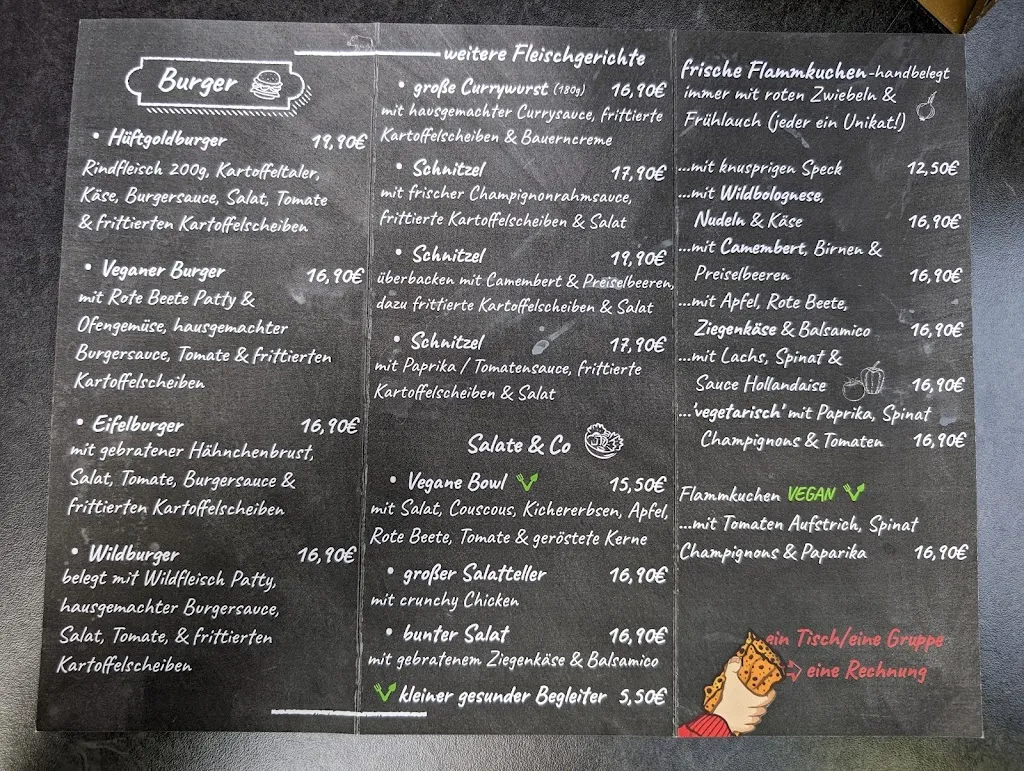 Burger
• Hüftgoldburger 19,90€
Rindfleisch 200g, Kartoffeltaler,
Käse, Burgersauce, Salat, Tomate
& frittierten Kartoffelscheiben
• Veganer Burger 16,90€
mit Rote Beete Patty &
Ofengemüse, hausgemachter
Burgersauce, Tomate & frittierten
Kartoffelscheiben
• Eifelburger 16,90€
mit gebratener Hähnchenbrust,
Salat, Tomate, Burgersauce &
frittierten Kartoffelscheiben
• Wildburger 16,90€
belegt mit Wildfleisch Patty,
hausgemachter Burgersauce,
Salat, Tomate, & frittierten
Kartoffelscheiben
weitere Fleischgerichte
• große Currywurst (180g) 16,90€
mit hausgemachter Currysauce, frittierte
Kartoffelscheiben & Bauerncreme
• Schnitzel 17,90€
mit frischer Champignonrahmsauce,
frittierte Kartoffelscheiben & Salat
• Schnitzel 19,90€
überbacken mit Camembert & Preiselbeeren,
dazu frittierte Kartoffelscheiben & Salat
• Schnitzel 17,90€
mit Paprika / Tomatensauce, frittierte
Kartoffelscheiben & Salat
Salate & Co
• Vegane Bowl 15,50€
mit Salat, Couscous, Kichererbsen, Apfel,
Rote Beete, Tomate & geröstete Kerne
• großer Salatteller 16,90€
mit crunchy Chicken
• bunter Salat 16,90€
mit gebratenem Ziegenkäse & Balsamico
kleiner gesunder Begleiter 5,50€
frische Flammkuchen-handbelegt
immer mit roten Zwiebeln &
Frühlauch (jeder ein Unikat!)
...mit knusprigen Speck 12,50€
...mit Wildbolognese,
Nudeln & Käse 16,90€
...mit Camembert, Birnen &
Preiselbeeren 16,90€
...mit Apfel, Rote Beete,
Ziegenkäse & Balsamico 16,90€
...mit Lachs, Spinat &
Sauce Hollandaise 16,90€
...'vegetarisch' mit Paprika, Spinat
Champignons & Tomaten 16,90€
Flammkuchen VEGAN
...mit Tomaten Aufstrich, Spinat
Champignons & Paparika 16,90€
ein Tisch/eine Gruppe
eine Rechnung